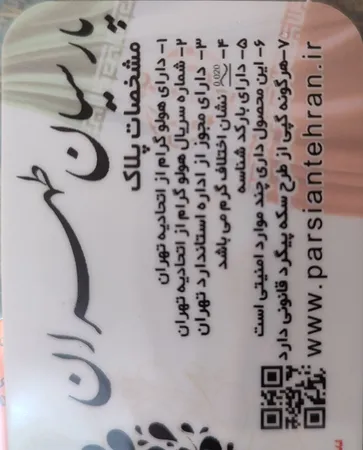 پارسیان طهران
مشخصات پلاک
۱- دارای هولوگرام از اتحادیه تهران
۲- شماره سریال هولوگرام از اتحادیه تهران
۳- دارای مجوز از اداره استاندارد تهران
۴- 0.020 نشان اختلاف گرم می باشد
۵- دارای بارکد شناسه
۶- این محصول داری چند موارد امنیتی است
۷-هرگونه کپی از طرح سکه پیگرد قانونی دارد
www.parsiantehran.ir